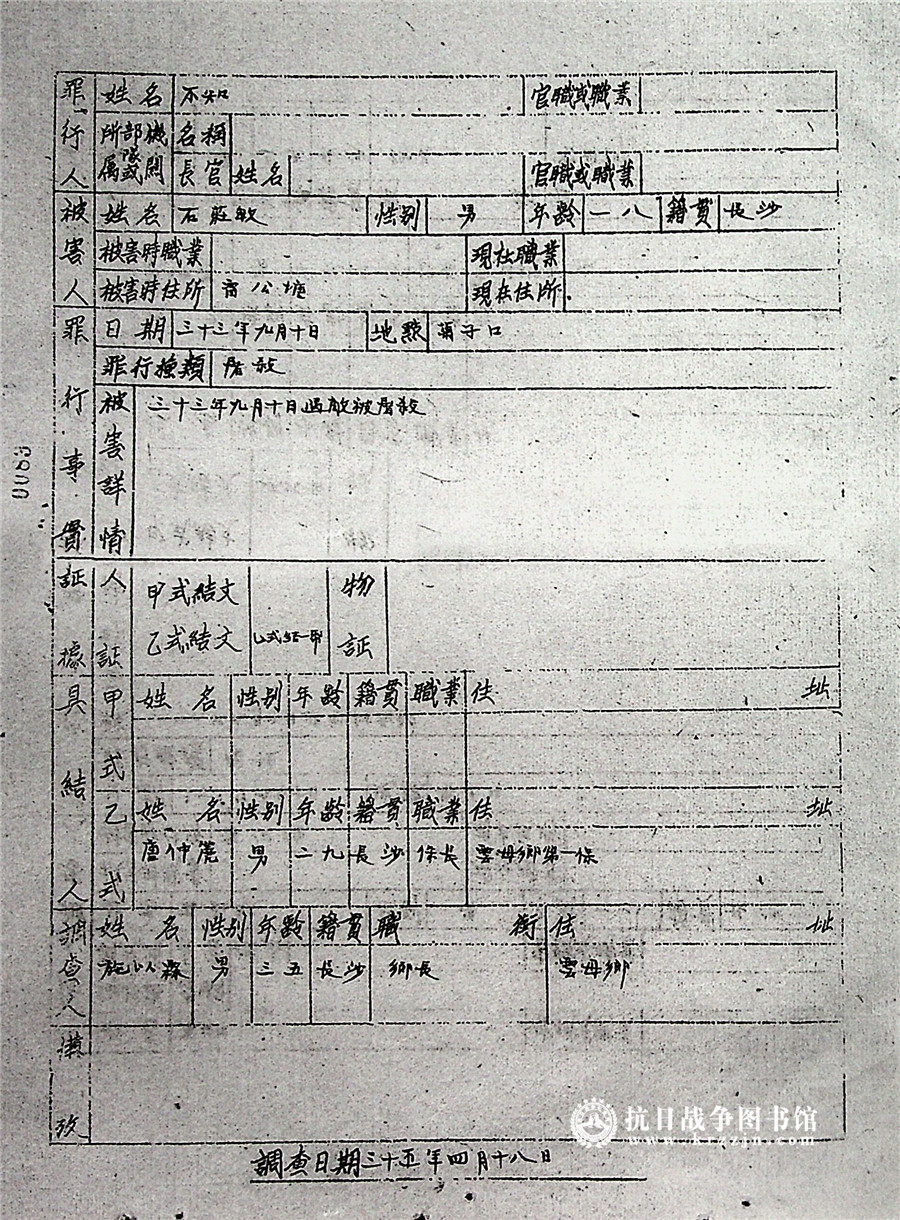 罪行人 姓名 不知 官職或職業
所屬部隊或機關 名稱
長官 姓名 官職或職業
被害人 姓名 石 敏 性别 男 年齡 一八 籍貫 長沙
被害時職業 現在職業
被害時住所 公塘 現在住所
罪行事實 日期 三十三年九月十日 地點 子口
罪行種類 屠殺
被害詳情 三十三年九月十日遇敵被屠殺
証據 人証 甲式結文 物証
乙式結文 乙式結一帋
具結人 甲式 姓名 性别 年齡 籍貫 職業 住址
乙式 姓名 性别 年齡 籍貫 職業 住址
唐仲 男 二九 長沙 保長 雲母鄉第一保
調查人 姓名 性别 年齡 籍貫 職銜 住址
施以 男 三五 長沙 鄉長 雲母鄉
備攷
調查日期三十五年四月十八日
0083
抗日战争图书馆
www.krzzjn.com